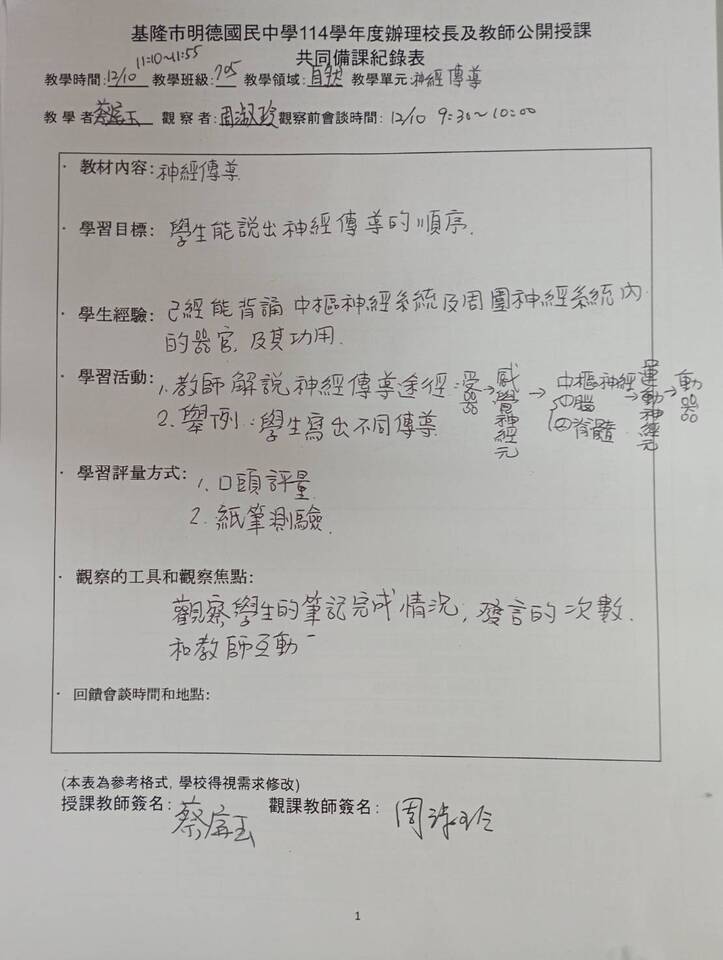 基隆市明德國民中學114學年度辦理校長及教師公開授課
共同備課紀錄表
11:10~11:55
教學時間:12/10 教學班級:705 教學領域:自然 教學單元:神經傳導
教 學 者:蔡玉 觀 察 者:周淑玲 觀察前會談時間: 12/10 9:30~10:00
· 教材內容:神經傳導
· 學習目標: 學生能說出神經傳導的順序.
· 學生經驗: 已經能背誦 中樞神經系統及周圍神經系統內
的器官,及其功用.
· 學習活動: 1.教師解說神經傳導途徑:受器→感覺神經元→中樞神經→運動神經元→動器
①腦
②脊髓
2.舉例:學生寫出不同傳導.
· 學習評量方式: 1.口頭評量
2.紙筆測驗.
· 觀察的工具和觀察焦點:
觀察學生的筆記完成情況;發言的次數.
和教師互動-
· 回饋會談時間和地點:
(本表為參考格式, 學校得視需求修改)
授課教師簽名: 蔡玉 觀課教師簽名: 周淑玲
1